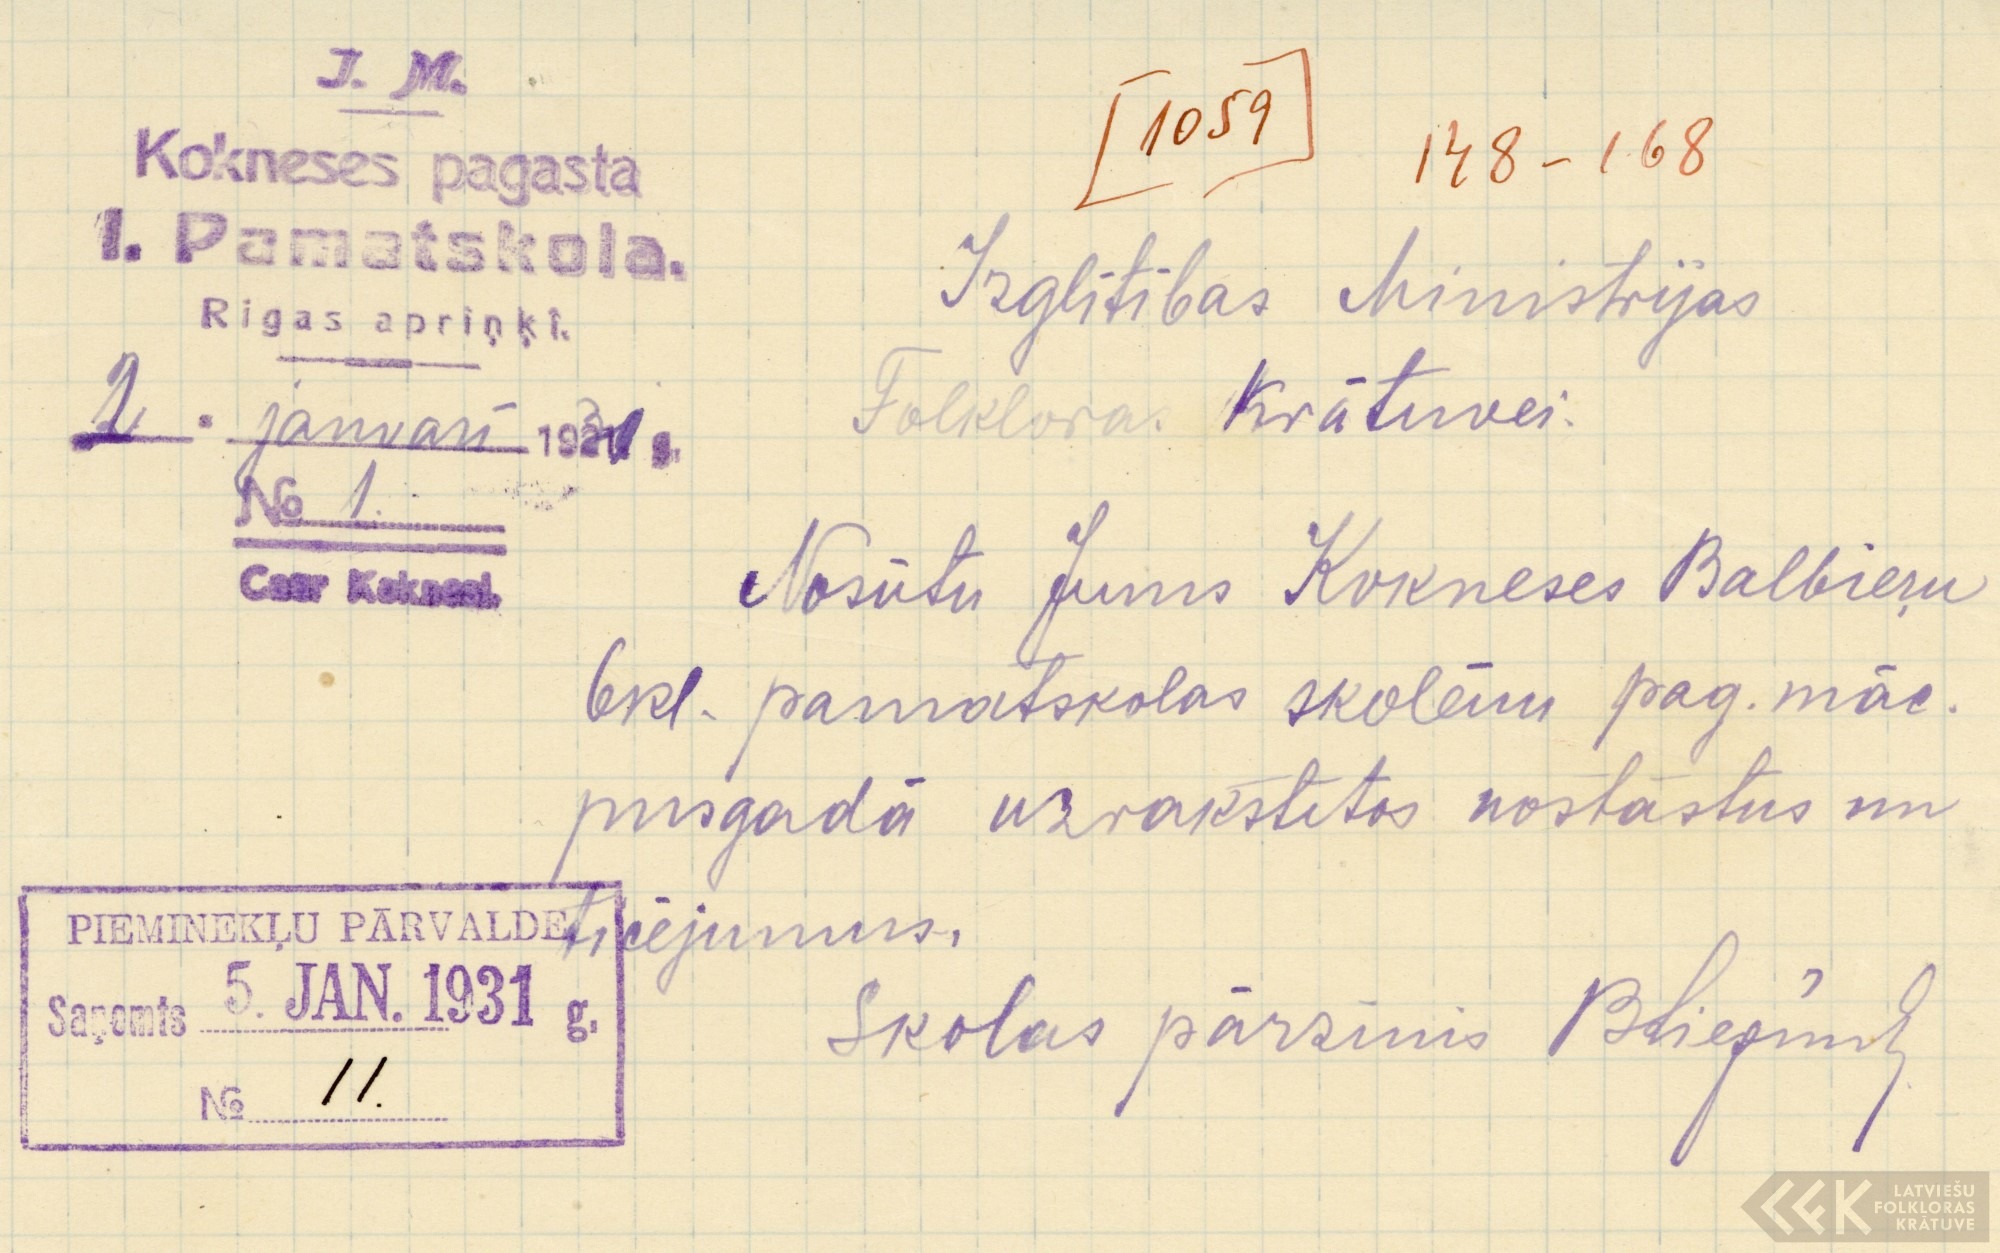 I. M.
Kokneses pagasta
1. Pamatskola.
Rigas apriņķī.
2. janvarī 1931 g.
№ 1.
Caur Koknesi.
[1059]
148-168
Izglītības Ministrijas
Folklora. Krātuvei.
Nosūtu Jums Kokneses Balbieŗu
6kl. pamatskolas skolēnu pag. māc.
pusgadā uzrakstītos nostāstus un
ticējumus.
Skolas pārzinis
PIEMINEKĻU PĀRVALDE
Saņemts 5. JAN. 1931 g.
№ 11.
LATVIEŠU
FOLKLORAS
KRĀTUVE